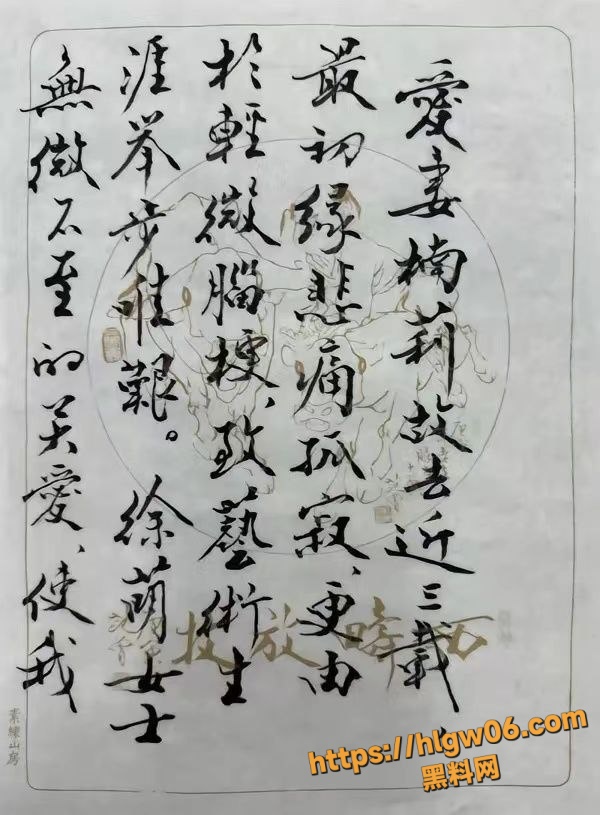 愛妻楠莉故去近三載,
最初緣悲痛孤寂、更由
於輕微腦梗、致藝術生
涯举步唯艱。徐萌女士
無微不至的关愛、使我
素練山房
https://hlgw06.com
黑料网